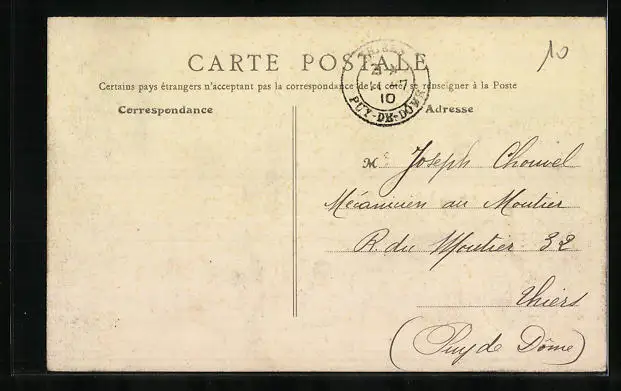 CARTE POSTALE
Certains pays étrangers n'acceptant pas la correspondance de ce côté, se renseigner à la Poste
Correspondance
Adresse
10
THIERS
-7
10
PUY-DE-DOME
Mr Joseph Chouvel
Mécanicien au Moutier
R. du Moutier 32
Thiers
(Puy de Dôme)